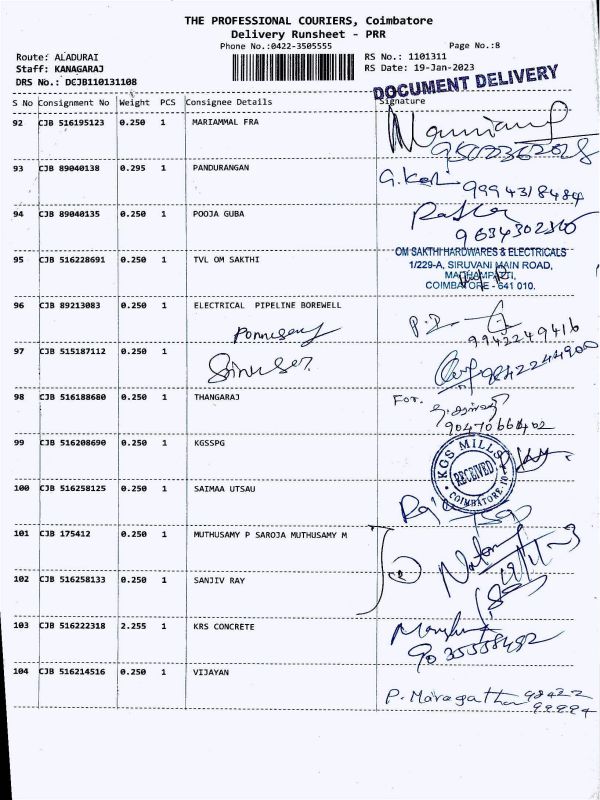 THE PROFESSIONAL COURIERS, Coimbatore
Delivery Runsheet - PRR
Phone No.:0422-3505555
Page No.:8
Route: ALADURAI
RS No.: 1101311
Staff: KANAGARAJ
RS Date: 19-Jan-2023
DRS No.: DCJB110131108
DOCUMENT DELIVERY
S No Consignment No Weight PCS Consignee Details Signature
92 CJB 516195123 0.250 1 MARIAMMAL FRA
93 CJB 89040138 0.295 1 PANDURANGAN
9994318484
94 CJB 89040135 0.250 1 POOJA GUBA
95 CJB 516228691 0.250 1 TVL OM SAKTHI
OM SAKTHI HARDWARES & ELECTRICALS
1/229-A, SIRUVANI MAIN ROAD,
COIMBATORE - 641 010.
96 CJB 89213083 0.250 1 ELECTRICAL PIPELINE BOREWELL
9942249416
97 CJB 515187112 0.250 1
9842244900
98 CJB 516188680 0.250 1 THANGARAJ
For.
99 CJB 516208690 0.250 1 KGSSPG
KGS MILLS
RECEIVED
COIMBATORE-10
100 CJB 516258125 0.250 1 SAIMAA UTSAU
101 CJB 175412 0.250 1 MUTHUSAMY P SAROJA MUTHUSAMY M
102 CJB 516258133 0.250 1 SANJIV RAY
103 CJB 516222318 2.255 1 KRS CONCRETE
104 CJB 516214516 0.250 1 VIJAYAN
P. Maragatha 98422
99994